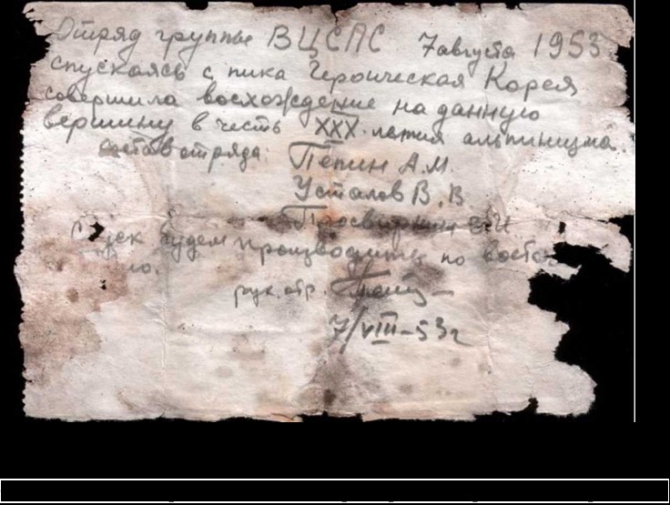 Отряд группы ВЦСПС 7 августа 1953
спускаясь с пика Героическая Корея
совершила восхождение на данную
вершину в честь XXX-летия альпинизма.
состав отряда: Пепин А.М.
Усталов В.В
В.И
будем производить по
рук. отр.
7/VIII-53г